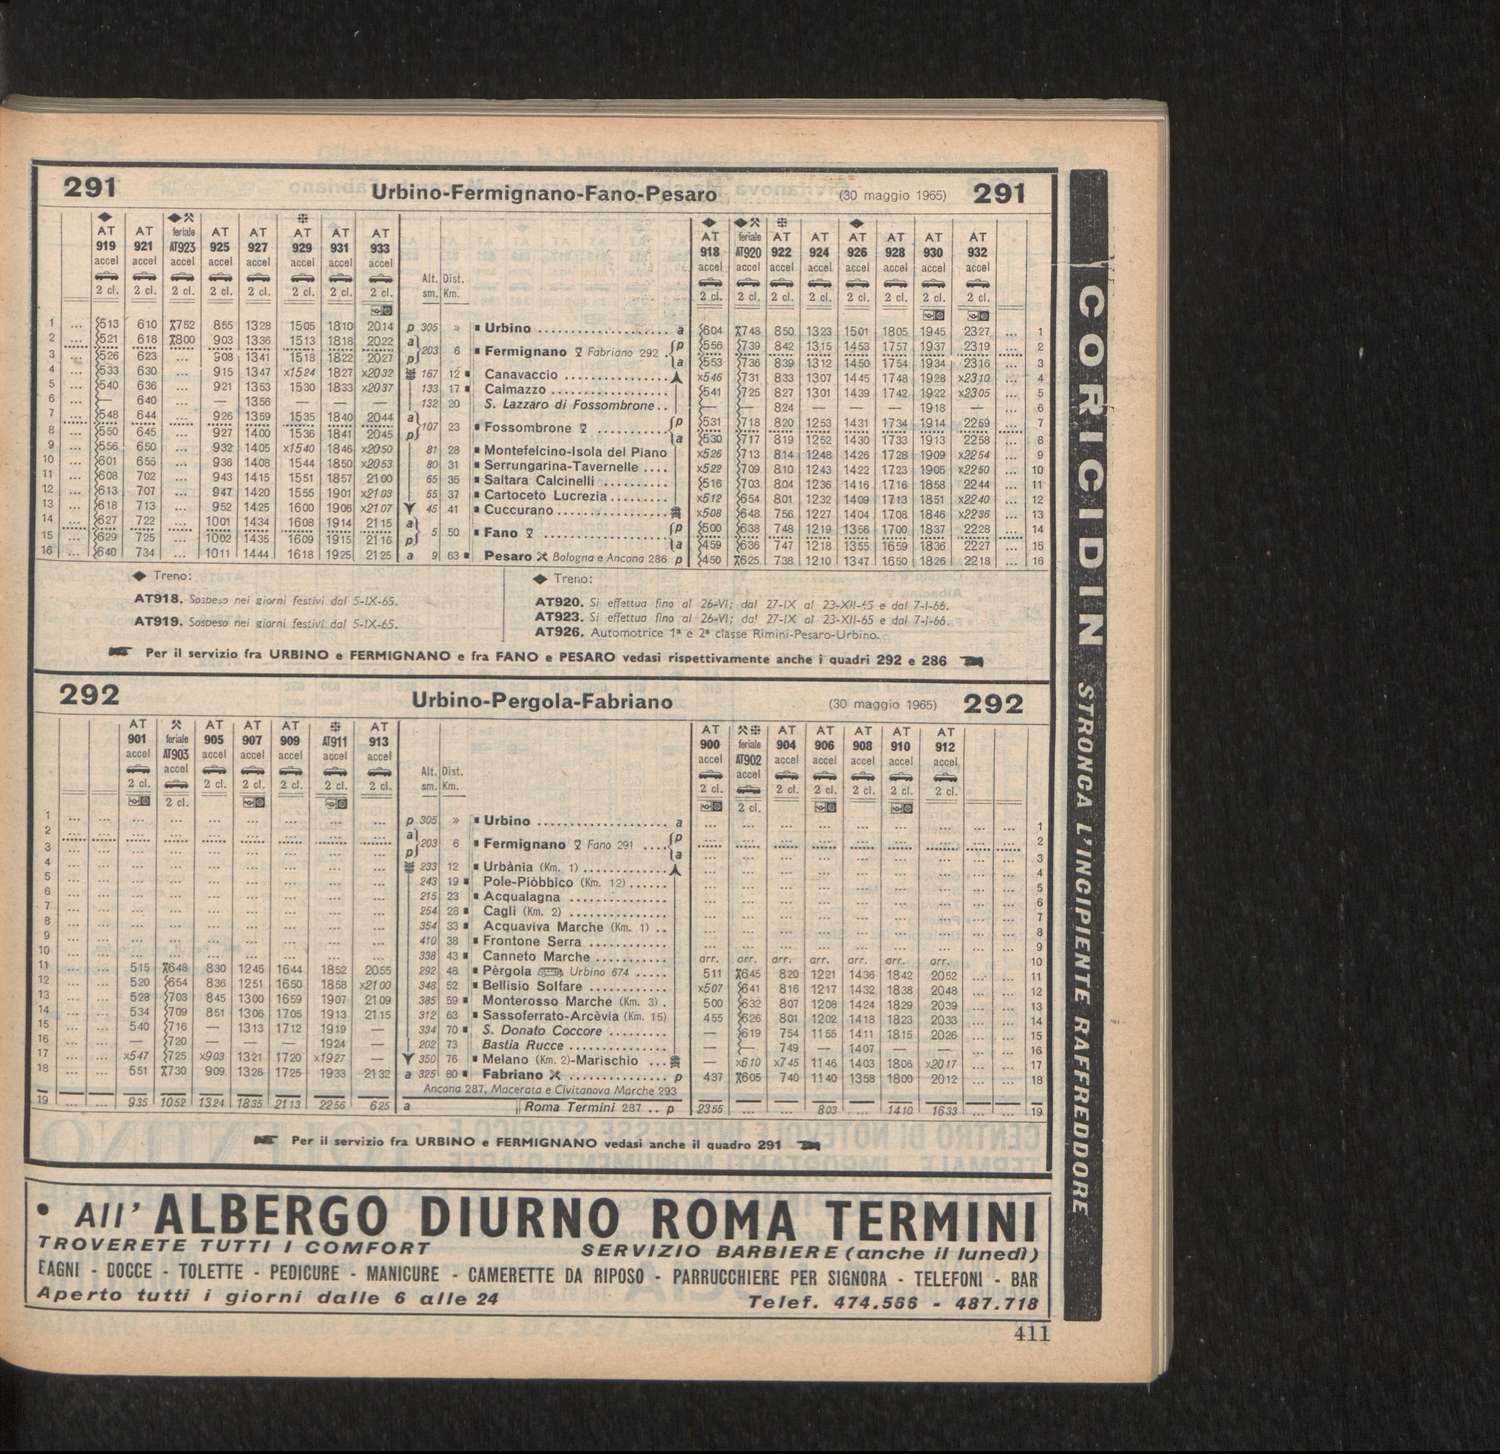 291 Urbino-Fermignano-Fano-Pesaro (30 maggio 1965) 291
AT AT feriale AT AT AT AT AT
919 921 AT923 925 927 929 931 933
accel accel accel accel accel accel accel accel
2 cl. 2 cl. 2 cl. 2 cl. 2 cl. 2 cl. 2 cl. 2 cl.
Alt. sm. Dist. Km.
AT feriale AT AT AT AT AT AT
918 AT920 922 924 926 928 930 932
accel accel accel accel accel accel accel accel
2 cl. 2 cl. 2 cl. 2 cl. 2 cl. 2 cl. 2 cl. 2 cl.
1 ... 513 610 752 855 1328 1505 1810 2014 p 305 » Urbino a 604 748 850 1323 1501 1805 1945 2327 ... 1
2 ... 521 618 800 903 1336 1513 1818 2022 a 203 6 Fermignano Fabriano 292 p 556 739 842 1315 1453 1757 1937 2319 ... 2
3 ... 526 623 ... 908 1341 1518 1822 2027 p a 553 736 839 1312 1450 1754 1934 2316 ... 3
4 ... 533 630 ... 915 1347 x1524 1827 x2032 167 12 Canavaccio x546 731 833 1307 1445 1748 1928 x2310 ... 4
5 ... 540 636 ... 921 1353 1530 1833 x2037 133 17 Calmazzo 541 725 827 1301 1439 1742 1922 x2305 ... 5
6 ... — 640 ... — 1356 — — — 132 20 S. Lazzaro di Fossombrone.. — — 824 — — — 1918 — ... 6
7 ... 548 644 ... 926 1359 1535 1840 2044 a 107 23 Fossombrone p 531 718 820 1253 1431 1734 1914 2259 ... 7
8 ... 550 645 ... 927 1400 1536 1841 2045 p a 530 717 819 1252 1430 1733 1913 2258 ... 8
9 ... 556 650 ... 932 1405 x1540 1846 x2050 81 28 Montefelcino-Isola del Piano x526 713 814 1248 1426 1728 1909 x2254 ... 9
10 ... 601 655 ... 936 1408 1544 1850 x2053 80 31 Serrungarina-Tavernelle .... x522 709 810 1243 1422 1723 1905 x2250 ... 10
11 ... 608 702 ... 943 1415 1551 1857 2100 65 35 Saltara Calcinelli 516 703 804 1236 1416 1716 1858 2244 ... 11
12 ... 613 707 ... 947 1420 1555 1901 x2103 55 37 Cartoceto Lucrezia x512 654 801 1232 1409 1713 1851 x2240 ... 12
13 ... 618 713 ... 952 1425 1600 1906 x2107 45 41 Cuccurano x508 648 756 1227 1404 1708 1846 x2236 ... 13
14 ... 627 722 ... 1001 1434 1608 1914 2115 a 5 50 Fano p 500 638 748 1219 1356 1700 1837 2228 ... 14
15 ... 629 725 ... 1002 1435 1609 1915 2116 p a 459 636 747 1218 1355 1659 1836 2227 ... 15
16 ... 640 734 ... 1011 1444 1618 1925 2125 a 9 63 Pesaro Bologna e Ancona 286 p 450 625 738 1210 1347 1650 1826 2218 ... 16
◆ Treno:
AT918. Sospeso nei giorni festivi dal 5-IX-65.
AT919. Sospeso nei giorni festivi dal 5-IX-65.
◆ Treno:
AT920. Si effettua fino al 26-VI; dal 27-IX al 23-XII-65 e dal 7-I-66.
AT923. Si effettua fino al 26-VI; dal 27-IX al 23-XII-65 e dal 7-I-66.
AT926. Automotrice 1ª e 2ª classe Rimini-Pesaro-Urbino.
Per il servizio fra URBINO e FERMIGNANO e fra FANO e PESARO vedasi rispettivamente anche i quadri 292 e 286
292 Urbino-Pergola-Fabriano (30 maggio 1965) 292
AT feriale AT AT AT AT911 AT
901 AT903 905 907 909 913
accel accel accel accel accel accel accel
2 cl. 2 cl. 2 cl. 2 cl. 2 cl. 2 cl. 2 cl.
Alt. sm. Dist. Km.
AT feriale AT AT AT AT AT
900 AT902 904 906 908 910 912
accel accel accel accel accel accel accel
2 cl. 2 cl. 2 cl. 2 cl. 2 cl. 2 cl. 2 cl.
1 ... ... ... ... ... ... ... ... ... p 305 » Urbino a ... ... ... ... ... ... ... ... ... 1
2 ... ... ... ... ... ... ... ... ... a 203 6 Fermignano Fano 291 .... p ... ... ... ... ... ... ... ... ... 2
3 ... ... ... ... ... ... ... ... ... p a ... ... ... ... ... ... ... ... ... 3
4 ... ... ... ... ... ... ... ... ... 233 12 Urbània (Km. 1) ... ... ... ... ... ... ... ... ... 4
5 ... ... ... ... ... ... ... ... ... 243 19 Pole-Piòbbico (Km. 12) ...... ... ... ... ... ... ... ... ... ... 5
6 ... ... ... ... ... ... ... ... ... 215 23 Acqualagna ... ... ... ... ... ... ... ... ... 6
7 ... ... ... ... ... ... ... ... ... 254 28 Cagli (Km. 2) ... ... ... ... ... ... ... ... ... 7
8 ... ... ... ... ... ... ... ... ... 354 33 Acquaviva Marche (Km. 1) .. ... ... ... ... ... ... ... ... ... 8
9 ... ... ... ... ... ... ... ... ... 410 38 Frontone Serra ... ... ... ... ... ... ... ... ... 9
10 ... ... ... ... ... ... ... ... ... 338 43 Canneto Marche arr. arr. arr. arr. arr. arr. arr. ... ... 10
11 ... ... 515 648 830 1245 1644 1852 2055 292 48 Pèrgola Urbino 674 ..... 511 645 820 1221 1436 1842 2052 ... ... 11
12 ... ... 520 654 836 1251 1650 1858 x2100 348 52 Bellisio Solfare x507 641 816 1217 1432 1838 2048 ... ... 12
13 ... ... 528 703 845 1300 1659 1907 2109 385 59 Monterosso Marche (Km. 3) . 500 632 807 1208 1424 1829 2039 ... ... 13
14 ... ... 534 709 851 1306 1705 1913 2115 312 63 Sassoferrato-Arcèvia (Km. 15) 455 626 801 1202 1418 1823 2033 ... ... 14
15 ... ... 540 716 — 1313 1712 1919 — 334 70 S. Donato Coccore — 619 754 1155 1411 1815 2026 ... ... 15
16 ... ... — 720 — — — 1924 — 202 73 Bastia Rucce — — 749 — 1407 — — ... ... 16
17 ... ... x547 725 x903 1321 1720 x1927 — 350 76 Melano (Km. 2)-Marischio ... — x610 x745 1146 1403 1806 x2017 ... ... 17
18 ... ... 551 730 909 1326 1725 1933 2132 a 325 80 Fabriano p 437 605 740 1140 1358 1800 2012 ... ... 18
Ancona 287, Macerata e Civitanova Marche 293
19 ... ... 935 1052 1324 1835 2113 2256 625 a Roma Termini 287 .. p 2355 ... ... 803 ... 1410 1633 ... ... 19
Per il servizio fra URBINO e FERMIGNANO vedasi anche il quadro 291
• All' ALBERGO DIURNO ROMA TERMINI
TROVERETE TUTTI I COMFORT SERVIZIO BARBIERE (anche il lunedì)
BAGNI - DOCCE - TOLETTE - PEDICURE - MANICURE - CAMERETTE DA RIPOSO - PARRUCCHIERE PER SIGNORA - TELEFONI - BAR
Aperto tutti i giorni dalle 6 alle 24 Telef. 474.566 - 487.718
411
CORICIDIN STRONCA L'INCIPIENTE RAFFREDDORE